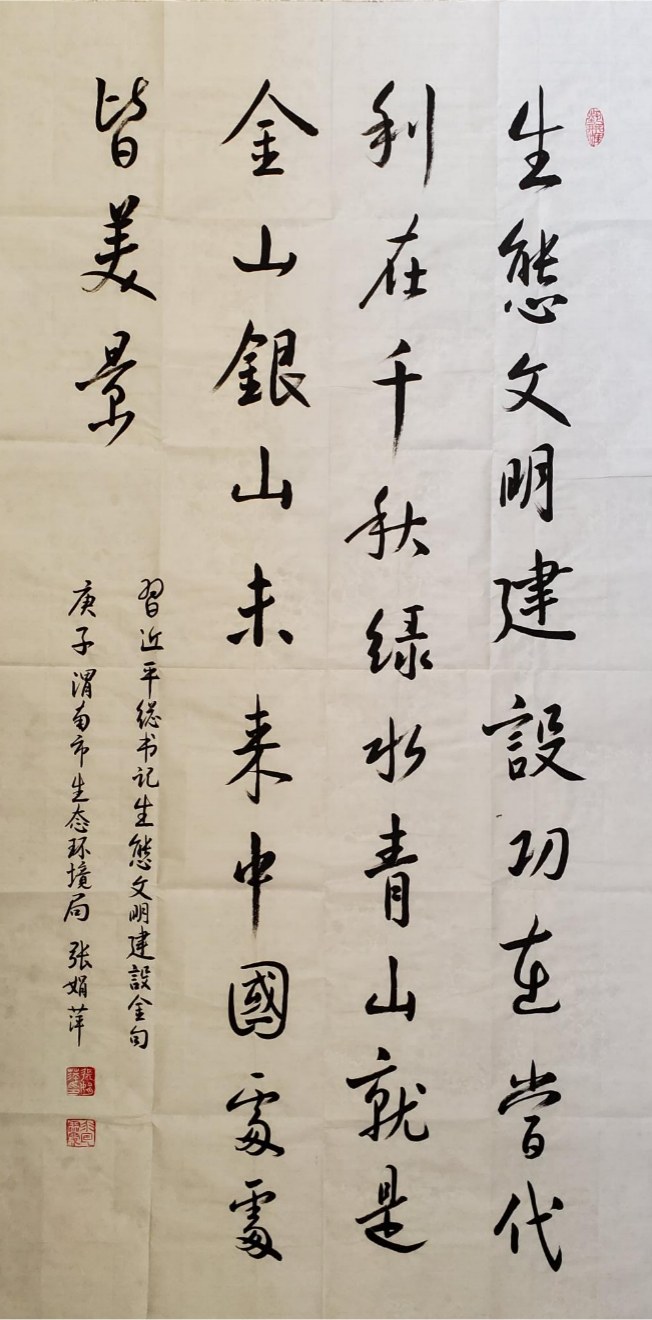 生態文明建設功在當代
利在千秋绿水青山就是
金山銀山未来中國處處
皆美景
習近平総书记生態文明建設金句
庚子渭南市生态环境局 张娟萍